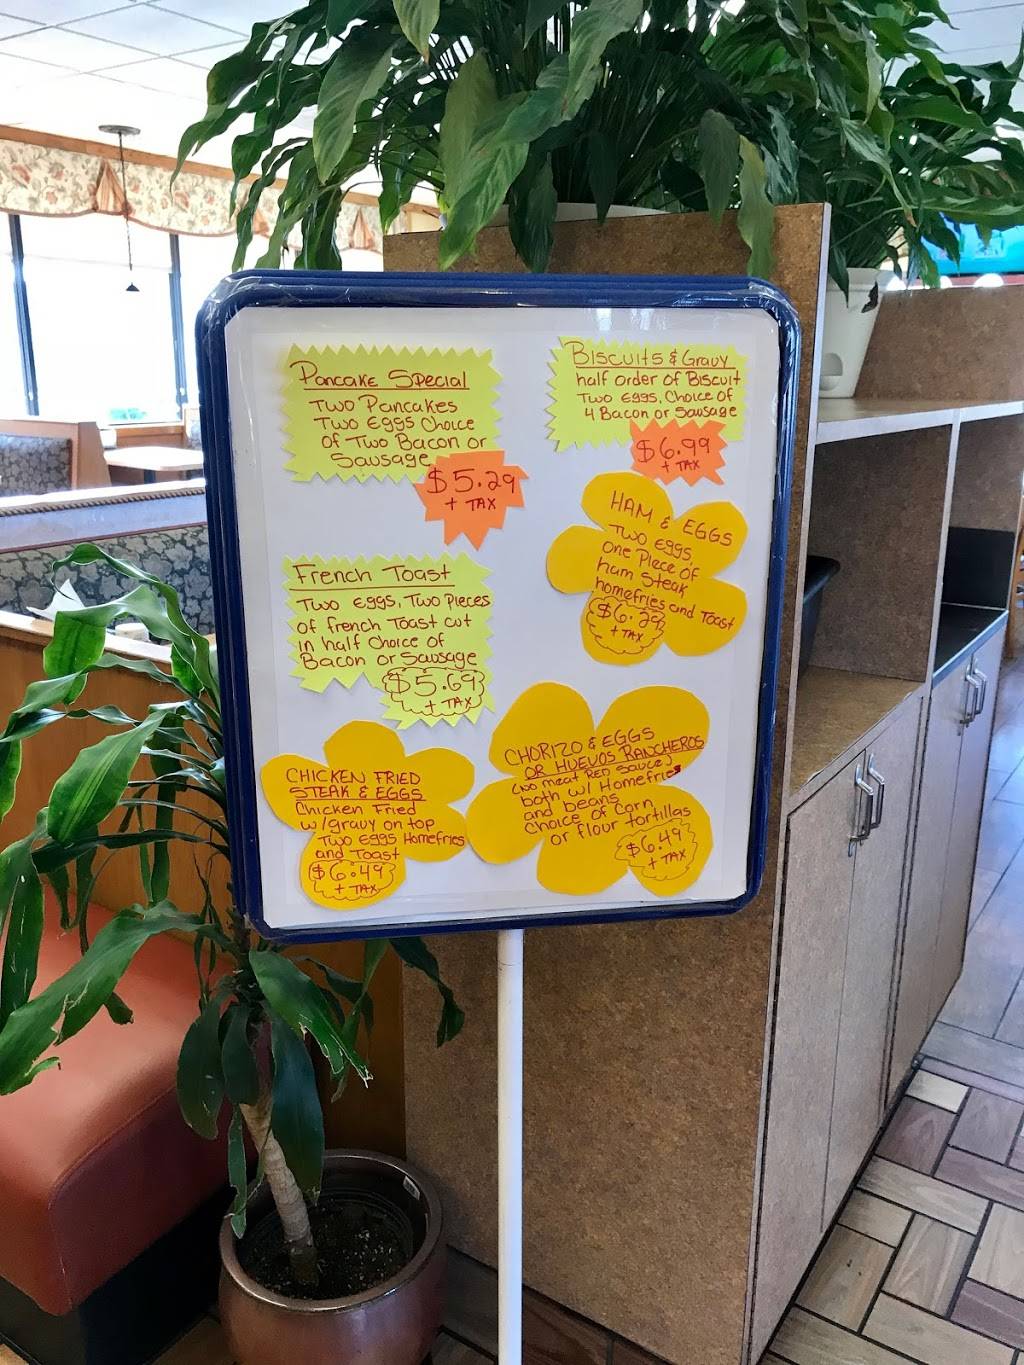 Pancake Special
Two Pancakes
Two Eggs Choice
of Two Bacon or
Sausage
$5.29
+ TAX
Biscuits & Gravy
half order of Biscuit
Two Eggs, Choice of
4 Bacon or Sausage
$6.99
+ TAX
HAM & EGGS
Two Eggs,
one Piece of
ham Steak
homefries and Toast
$6.29
+ TAX
French Toast
Two eggs, Two Pieces
of french Toast cut
in half Choice of
Bacon or Sausage
$5.69
+ TAX
CHICKEN FRIED
STEAK & EGGS
Chicken Fried
w/gravy on top
Two Eggs Homefries
and Toast
$6.49
+ TAX
CHORIZO & EGGS
OR HUEVOS RANCHEROS
(NO meat RED sauce)
both w/ Homefries
and beans
Choice of Corn
or flour tortillas
$6.49
+ TAX